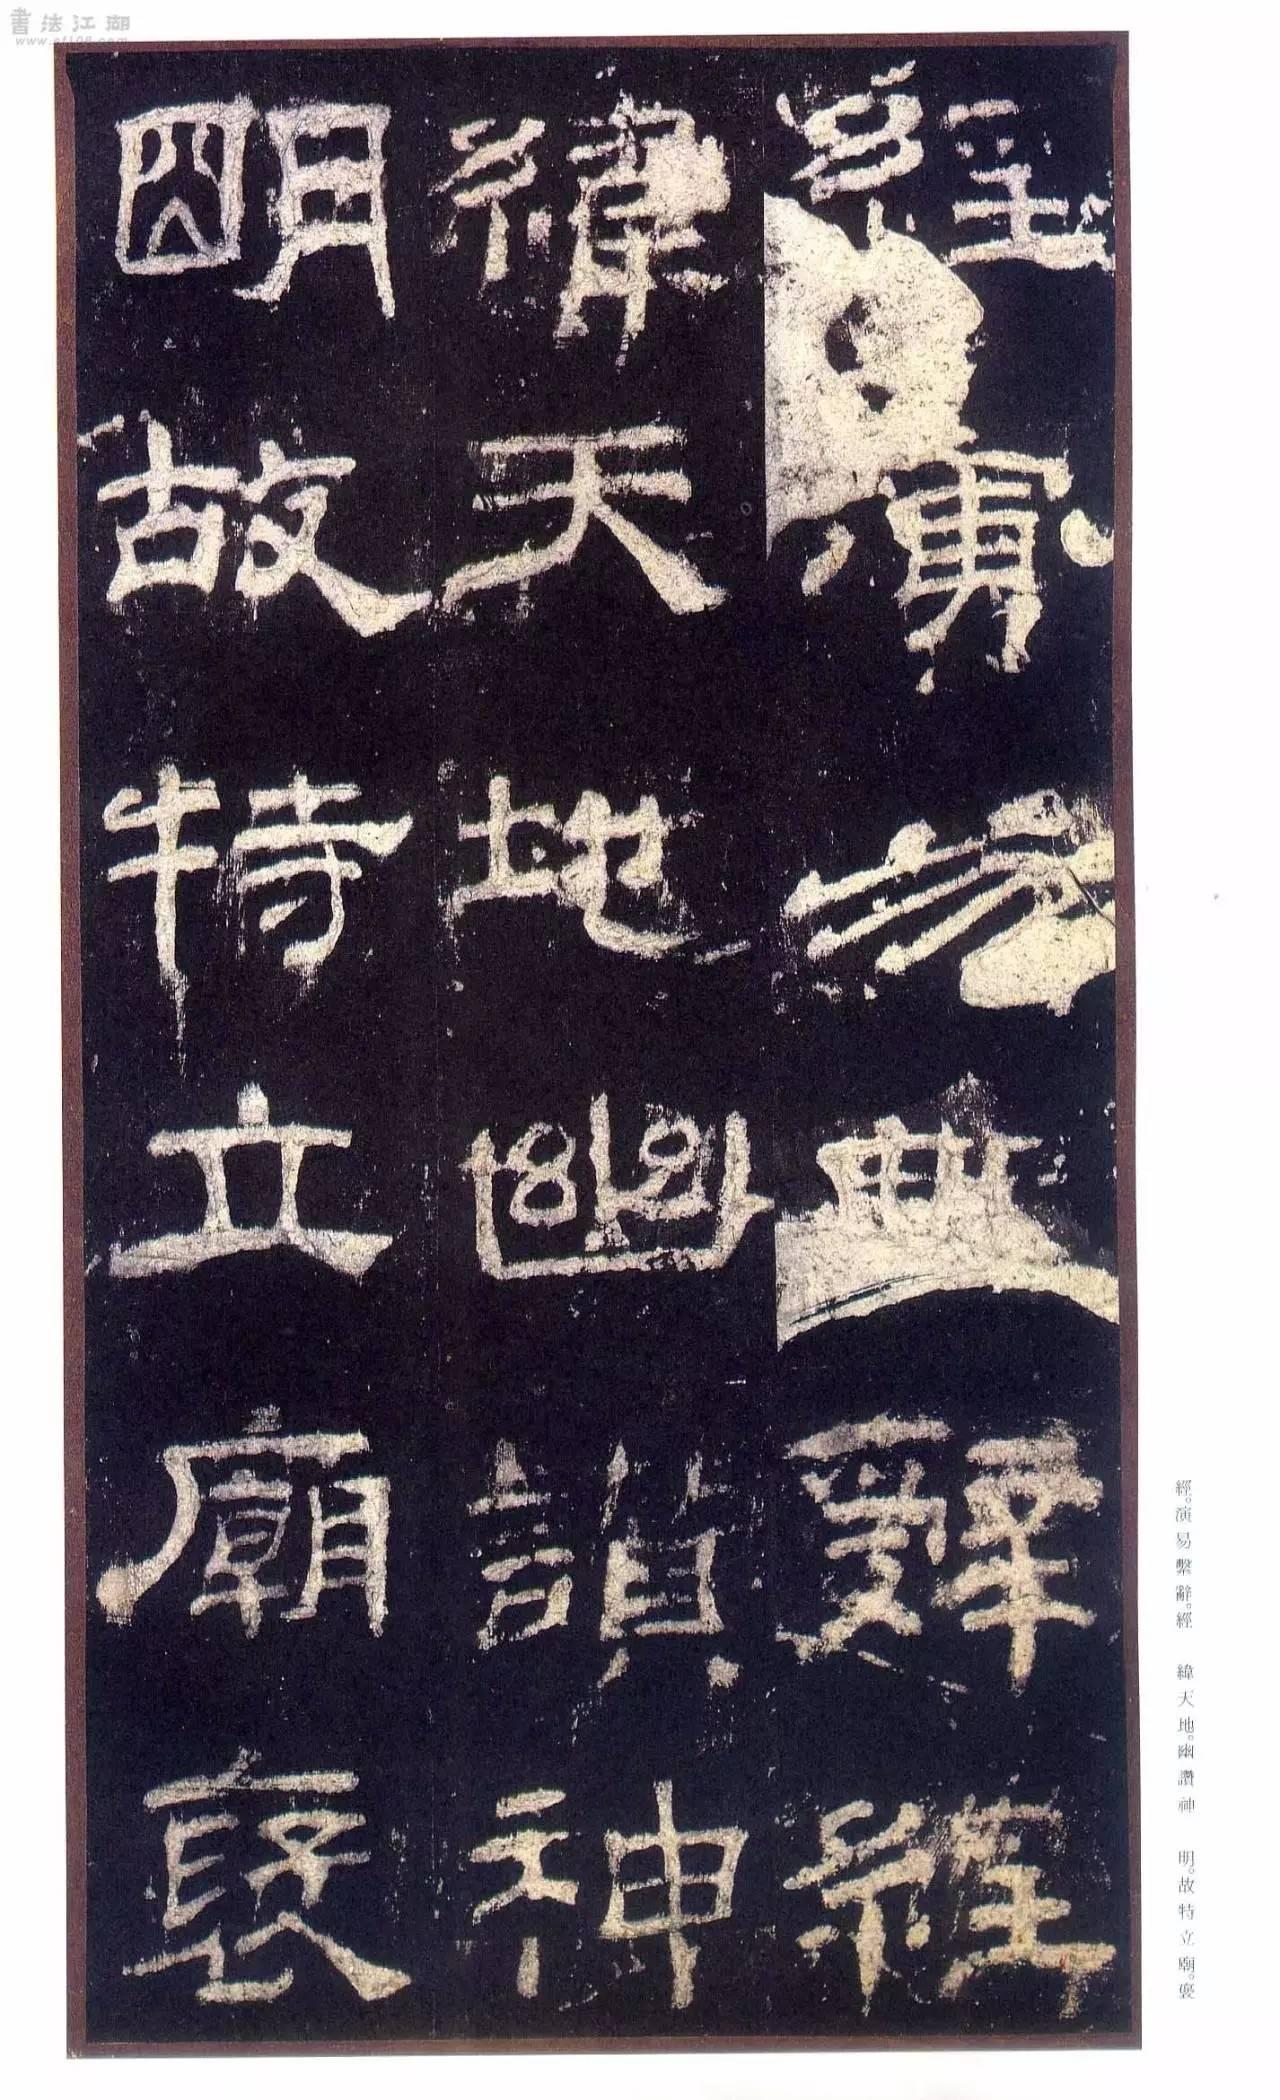 經演易繫辭經
緯天地幽讚神
明故特立廟褒
經。演易繫辭。經 緯天地。幽讚神 明。故特立廟。褒
書法江湖
www.sf108.com